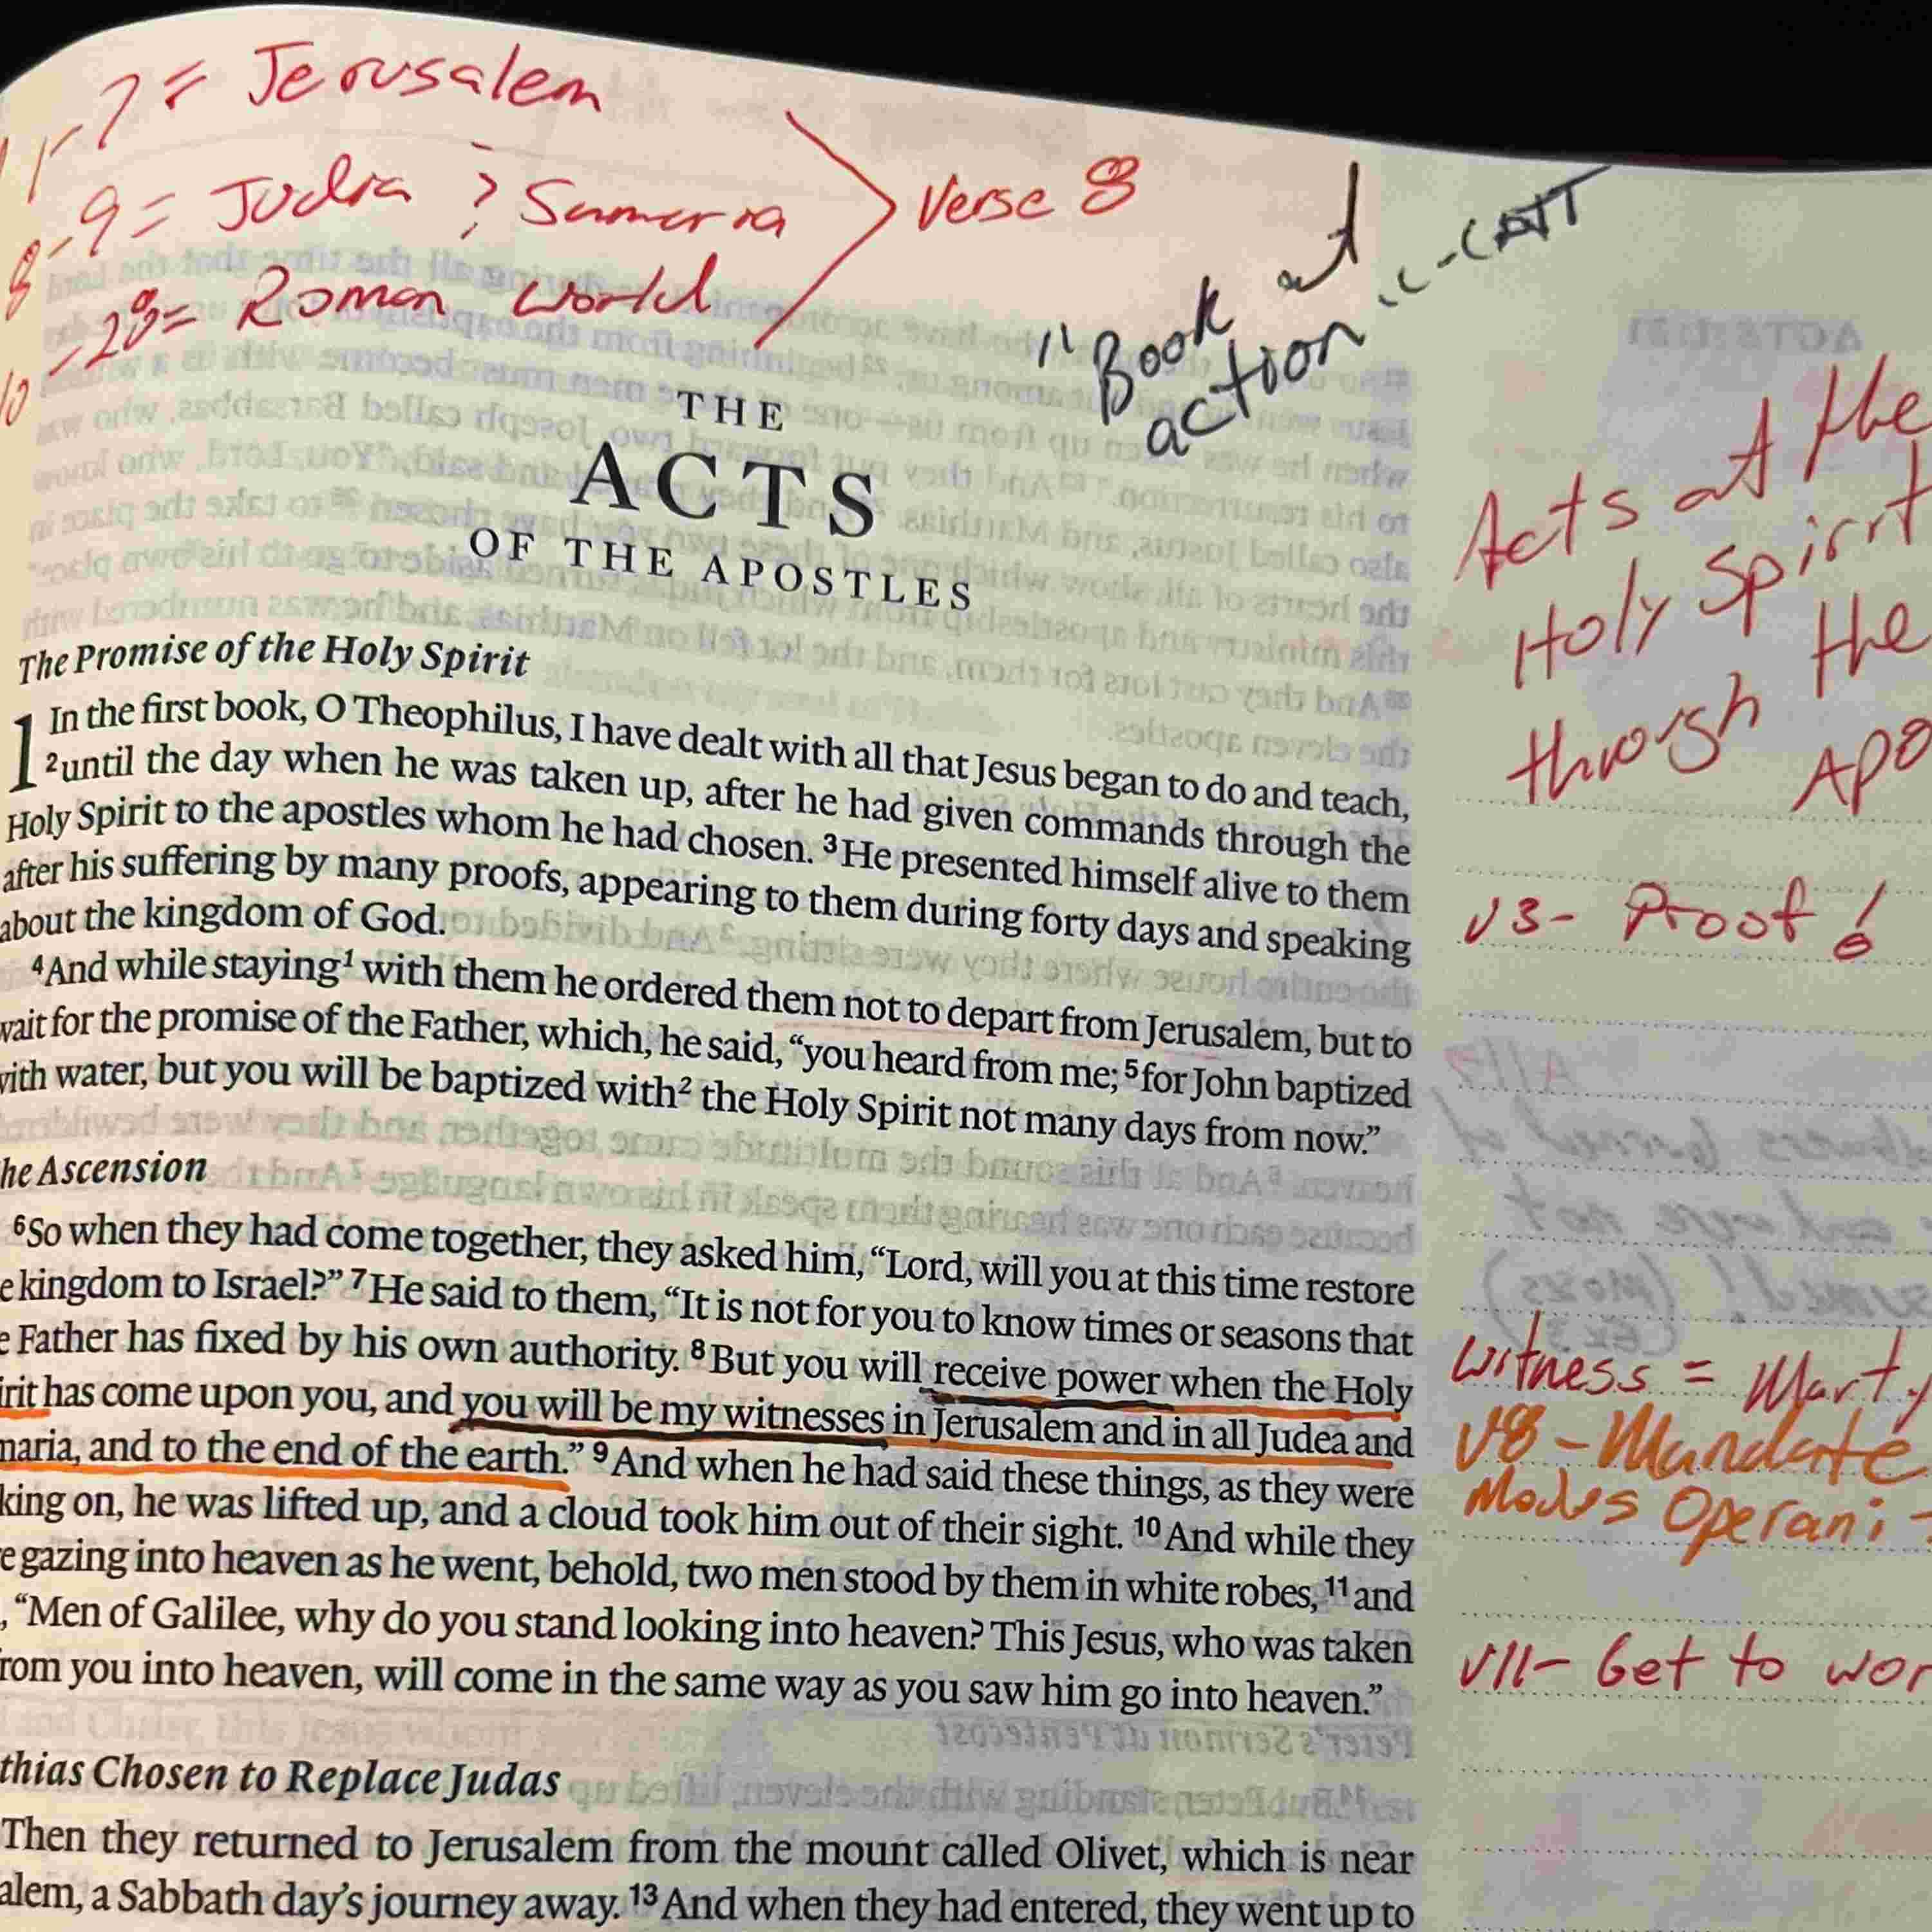 1-7 = Jerusalem
8-9 = Judia & Sumaria
10-28 = Roman World
Verse 8
"Book of
action" -CATT
THE
ACTS
OF THE APOSTLES
Acts of the
Holy Spirit
through the
Apo
The Promise of the Holy Spirit
1 In the first book, O Theophilus, I have dealt with all that Jesus began to do and teach,
2 until the day when he was taken up, after he had given commands through the
Holy Spirit to the apostles whom he had chosen. 3 He presented himself alive to them
after his suffering by many proofs, appearing to them during forty days and speaking
about the kingdom of God.
v3- Proof!
4 And while staying1 with them he ordered them not to depart from Jerusalem, but to
wait for the promise of the Father, which, he said, “you heard from me; 5 for John baptized
with water, but you will be baptized with2 the Holy Spirit not many days from now.”
he Ascension
6 So when they had come together, they asked him, “Lord, will you at this time restore
e kingdom to Israel?” 7 He said to them, “It is not for you to know times or seasons that
e Father has fixed by his own authority. 8 But you will receive power when the Holy
irit has come upon you, and you will be my witnesses in Jerusalem and in all Judea and
maria, and to the end of the earth.” 9 And when he had said these things, as they were
king on, he was lifted up, and a cloud took him out of their sight. 10 And while they
e gazing into heaven as he went, behold, two men stood by them in white robes, 11 and
, “Men of Galilee, why do you stand looking into heaven? This Jesus, who was taken
rom you into heaven, will come in the same way as you saw him go into heaven.”
witness = Marty
V8-Mandate
Modus Operani -
v11- Get to wor
thias Chosen to Replace Judas
Then they returned to Jerusalem from the mount called Olivet, which is near
alem, a Sabbath day’s journey away. 13 And when they had entered, they went up to